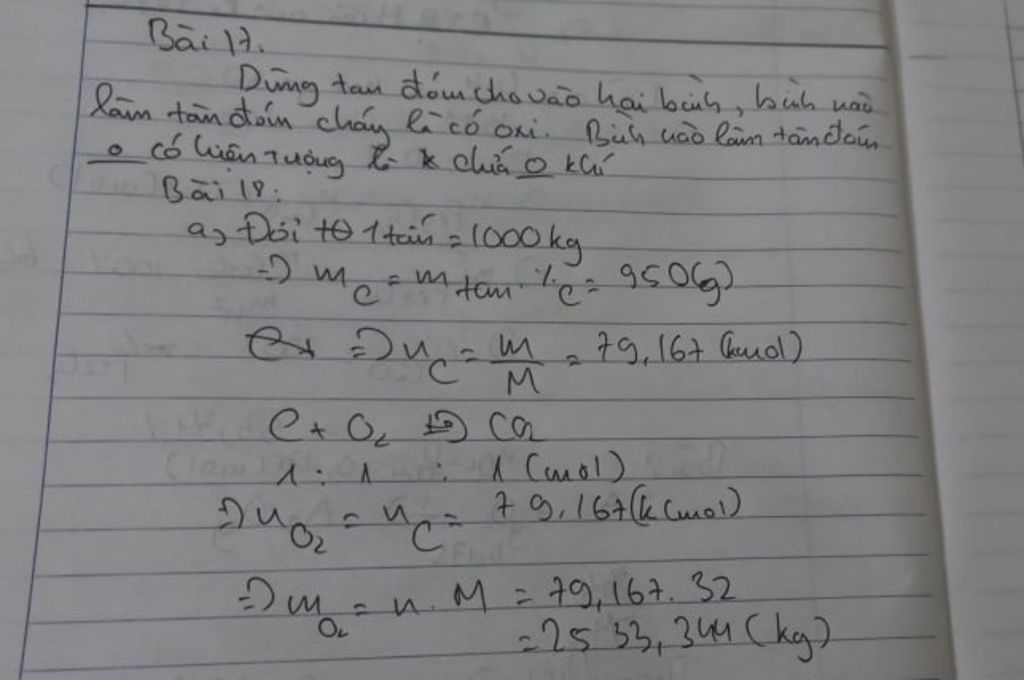 Bài 17.
Dùng tan đóm cho vào hai bình, bình nào
làm tàn đóm cháy là có oxi. Bình nào làm tàn đóm
o có hiện tượng là k chứa o khí
Bài 18:
a, Đổi 1 tấn = 1000kg
=> m_C = m_than . %_C = 950(g)
=> n_C = m/M = 79,167 (kmol)
C + O₂ => CO₂
1 : 1 : 1 (mol)
=> n_O₂ = n_C = 79,167(kmol)
=> m_O₂ = n . M = 79,167 . 32
= 2533,344 (kg)